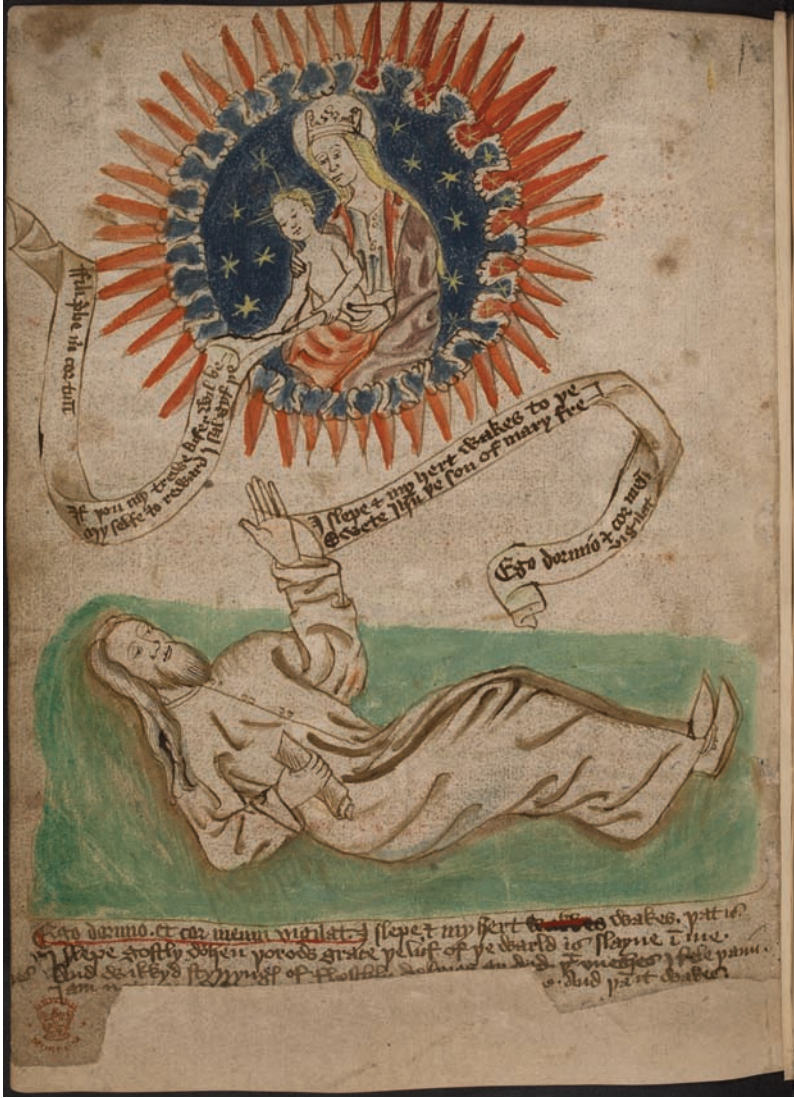 ffili p̄be m̄ cor tuū
If þou my trewe lufer wil be
My selfe to reward I sal gyf þe
I slepe & my hert wakes to þe
Swete ihū þe son of mary fre
Ego dormio & cor meū
vigilat
Ego dormio. et cor meum vigilat. I slepe & my hert wakes. þat is.
I slepe gostly when þorow grace þe luf of þe warld is slayne ī me.
And wikkyd styryngs of flesshly I fele þam.
I am
And þā it wakes